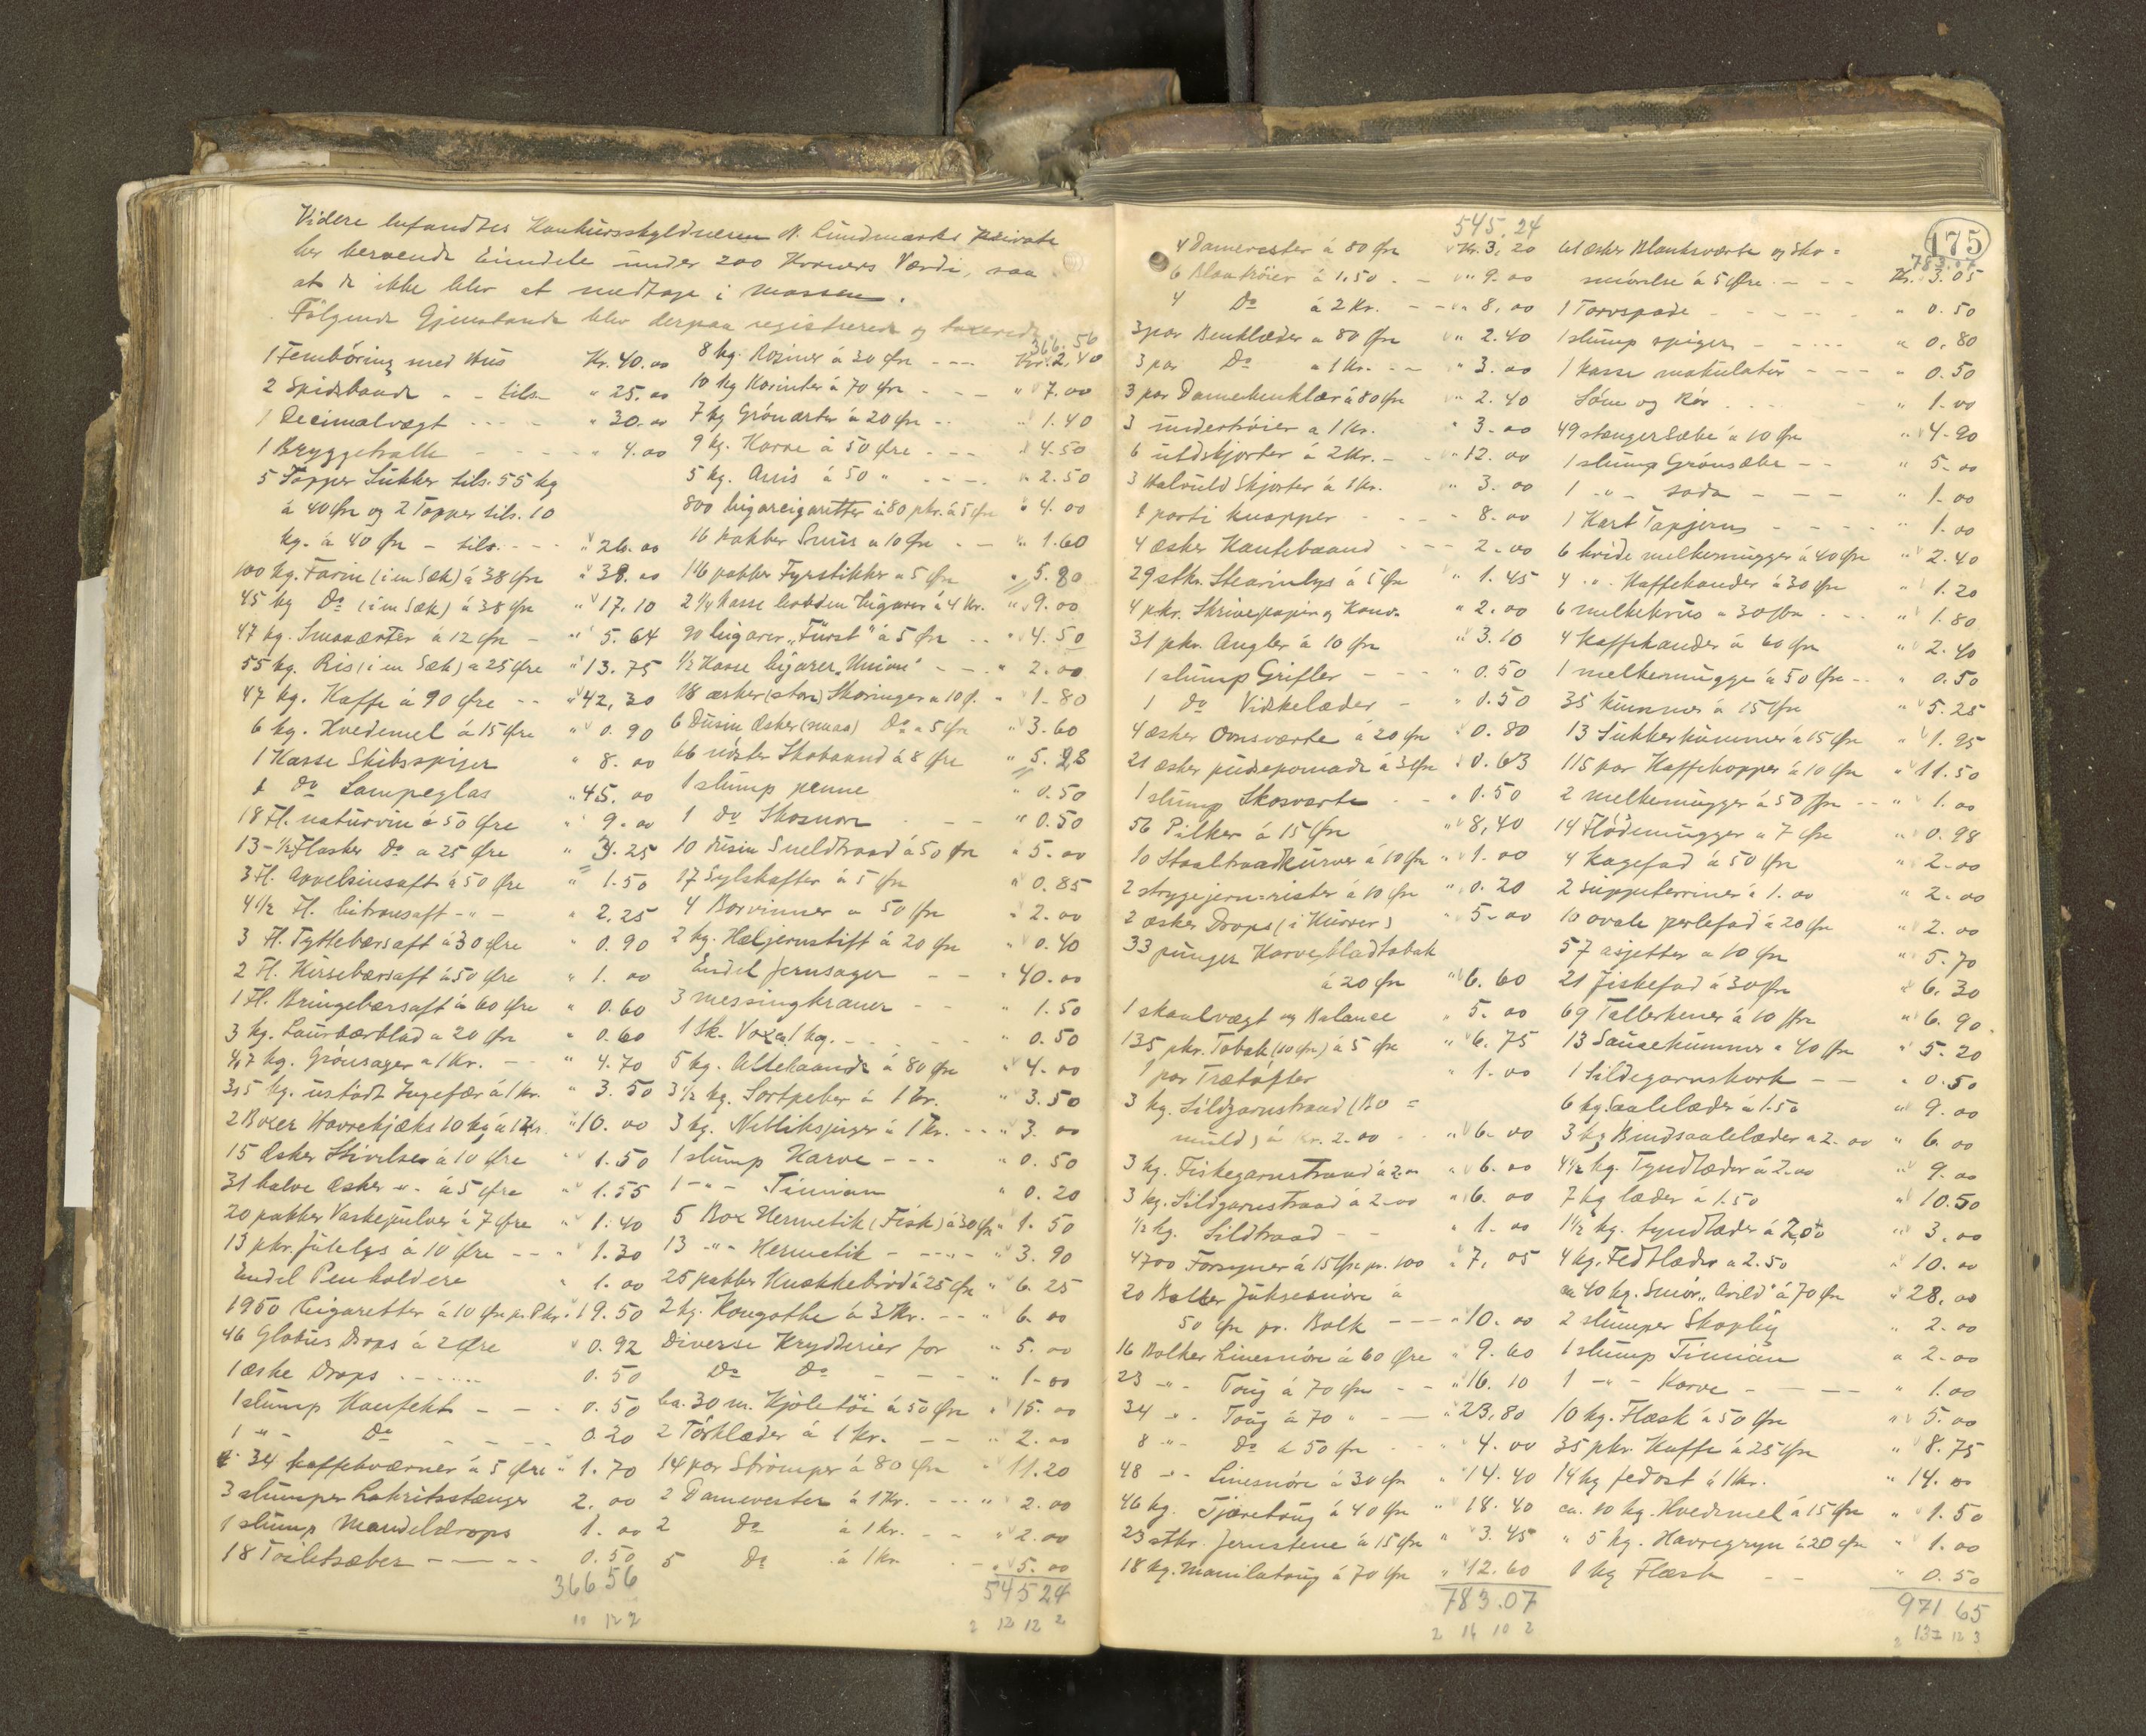 Videre befandtes Konkursskyldneren N. Lundmarks private
her beroende Eiendele under 200 Kroners Værdi, saa
at de ikke blev at medtage i Massen.
Følgende Gjenstande blev derpaa registrerede og taxerede
1 Fembøring med Hus Kr. 40.00
2 Spidsbaade - - tils. " 25.00
1 Decimalvægt " 30.00
1 Bryggetralle " 4.00
5 Topper Sukker tils. 55 kg
à 40 Øre og 2 Topper tils. 10
kg. à 40 Øre - tils. " 26.00
100 kg. Farin (i en Sæk) à 38 Øre " 38.00
45 kg Do (i en Sæk) à 38 Øre " 17.10
47 kg. Smaaærter à 12 Øre " 5.64
55 kg. Ris (i en Sæk) a 25 Øre " 13.75
47 kg. Kaffe à 90 Øre " 42,30
6 kg. Hvedemel à 15 Øre " 0.90
1 Kasse Skibsspiger " 8.00
1 do Lampeglas " 45.00
18 Fl. naturvin à 50 Øre " 9.00
13-1/2 Flasker Do a 25 Øre " 3.25
3 Fl. Appelsinsaft à 50 Øre " 1.50
4 1/2 Fl. Citronsaft - " - " 2,25
3 Fl. Tyttebærsaft à 30 Øre " 0.90
2 Fl. Kirsebærsaft à 50 Øre " 1.00
1 Fl. Bringebærsaft à 60 Øre " 0.60
3 kg. Laurbærblad a 20 Øre " 0.60
4,7 kg. Grønsager a 1 Kr. " 4.70
3,5 kg. ustødt Ingefær à 1 Kr. " 3.50
2 Boxer Havrekjæks 10 kg à 1 Kr. " 10.00
15 Æsker Stivelse à 10 Øre " 1.50
31 halve Æsker -"- à 5 Øre " 1.55
20 pakker Vaskepulver à 7 Øre " 1.40
13 pkr. Julelys à 10 Øre " 1.30
Endel Penholdere " 1.00
1950 Cigaretter à 10 Øre pr. Pkr. " 19.50
46 Globus Drops à 2 Øre " 0.92
1 æske Drops 0.50
1 slump Konfekt 0.50
1 " - Do 0.20
34 kaffekværner à 5 Øre " 1.70
3 slumper Lakritsstænger 2.00
1 slump Mandeldrops 1.00
18 Toiletsæber 0.50
366 56
10 12 2
366.56
8 kg. Rosiner à 30 Øre Kr. 2,40
10 kg Korinter à 70 Øre " 7.00
7 kg Grønærter à 20 Øre " 1.40
9 kg. Karve à 50 Øre " 4.50
5 kg. Anis à 50 " " 2.50
800 Cigarcigaretter i 80 pkr. à 5 Øre " 4.00
16 pakker Snus a 10 Øre " 1.60
116 pakker Fyrstikker a 5 Øre " 5.80
2 1/4 Kasse Cigarer à 4 Kr. " 9.00
90 Cigarer "Fürst" à 5 Øre " 4.50
1/2 Kasse Cigarer "Union" " 2.00
18 æsker (store) Skoringer a 10 Ø. " 1.80
6 Dusin Æsker (smaa) Do a 5 Øre " 3.60
66 nøster Skobaand à 8 Øre " 5.28
1 slump penne " 0.50
1 do Skosnor " 0.50
10 dusin Sneldtraad à 50 Øre " 5.00
17 Sylskafter à 5 Øre " 0.85
4 Borvinner a 50 Øre " 2.00
2 kg. Hæljernstift à 20 Øre " 0.40
Endel Jernsager " 40.00
3 messingkraner " 1.50
1 Sk. Vox a 1 kg. " 0.50
5 kg. Allehaande à 80 Øre " 4.00
3 1/2 kg. Sortpeber à 1 Kr. " 3.50
3 kg. Nellikspiger à 1 Kr. " 3.00
1 slump Karve " 0.50
1 - " - Timian " 0.20
5 Box Hermetik (Fisk) à 30 Øre " 1.50
13 -"- Hermetik - " - " 3.90
25 pakker Knækkebrød à 25 Øre " 6.25
2 kg. Kongothe à 3 Kr. " 6.00
Diverse Krydderier for " 5.00
Do Do " 1.00
Ca. 30 m. Kjoletøi à 50 Øre " 15.00
2 Tørklæder à 1 Kr. " 2.00
14 par Strømper à 80 Øre " 11.20
2 Damevester à 1 Kr. " 2.00
2 Do à 1 Kr. " 2.00
5 Do à 1 Kr " 5.00
545 24
2 12 12 2
545.24
4 Damevester à 80 Øre Kr. 3,20
6 Blaatrøier à 1,50 " 9.00
4 Do à 2 Kr. " 8,00
3 par Benklæder a 80 Øre " 2.40
3 par Do a 1 Kr. " 3.00
3 par Damebenklær à 80 Øre " 2.40
3 undertrøier a 1 Kr. " 3.00
6 uldskjorter à 2 Kr. " 12.00
3 Halvuld Skjorter à 1 Kr. " 3.00
1 parti knapper 8.00
4 æsker Kantebaand 2.00
29 stk. Stearinlys à 5 Øre " 1.45
4 pkr. Skrivepapir og Konv. " 2.00
31 pkr. Angler à 10 Øre " 3.10
1 slump Grifler " 0.50
1 do Viskelæder " 0.50
4 æsker Ovnsværte à 20 Øre " 0.80
21 æsker pudsepomade à 3 Øre " 0.63
1 slump Skosværte " 0.50
56 Pilker à 15 Øre " 8,40
10 Staaltraadkurver à 10 Øre " 1.00
2 strygejern-rister à 10 Øre " 0.20
2 æsker Drops (i Kurver) " 5.00
33 punger Karvebladtobak
à 20 Øre " 6.60
1 skaalvægt og Balance " 5.00
135 pkr. Tobak (10 Øre) à 5 Øre " 6.75
1 par Trætøfler " 1.00
3 kg. Sildgarnstraad (Bo =
muld) à Kr. 2.00 " 6.00
3 kg. Fiskegarnstraad à 2.00 " 6.00
3 kg. Sildgarnstraad à 2.00 " 6.00
1/2 kg. Sildtraad " 1.00
4700 Forsyner à 15 Øre pr. 100 " 7,05
20 Bolker Juksesnøre à
50 Øre pr. Bolk " 10.00
16 Bolker Linesnøre à 60 Øre " 9.60
23 -"- Toug à 70 Øre " 16.10
34 -"- Toug à 70 " " 23,80
8 "- Do à 50 Øre " 4.00
48 -"- Linesnøre à 30 Øre " 14.40
46 kg. Tjæretoug à 40 Øre " 18.40
23 stkr. Jernstene à 15 Øre " 3.45
18 kg. Manilatoug à 70 Øre " 12.60
783.07
2 14 10 2
175
783.07
61 æsker Blanksværte og Sko =
smørelse à 5 Øre Kr. 3.05
1 Torvspade " 0.50
1 slump spiger " 0.80
1 kasse makulatur " 0.50
Søm og Rør " 1.00
49 stænger Sæbe a 10 Øre " 4.90
1 slump Grønsæbe " 5.00
1 - " - soda " 1.00
1 Kart Tapjern " 1.00
6 hvide melkemugger à 40 Øre " 2.40
4 " Kaffekander à 30 Øre " 1.20
6 melkekrus a 30 Øre " 1.80
4 Kaffekander à 60 Øre " 2.40
1 melkemugge à 50 Øre " 0.50
35 kummer à 15 Øre " 5.25
13 Sukkerkummer a 15 Øre " 1.95
115 par Kaffekopper à 10 Øre " 11.50
2 melkemugger à 50 Øre " 1.00
14 Flødemugger a 7 Øre " 0.98
4 kagefad à 50 Øre " 2.00
2 suppeterriner à 1.00 " 2.00
10 ovale perlefad à 20 Øre " 2.00
57 asjetter a 10 Øre " 5.70
21 Fiskefad à 30 Øre " 6,30
69 Tallerkener à 10 Øre " 6.90
13 Sausekummer a 40 Øre " 5.20
1 Sildegarnskork " 0.50
6 kg. Saalelæder à 1.50 " 9.00
3 kg Bindsaalelæder a 2.00 " 6.00
4 1/2 kg. Tyndlæder à 2.00 " 9.00
7 kg læder à 1.50 " 10.50
1 1/2 kg. tyndlæder à 2,00 " 3,00
4 kg. Fedtlæder a 2.50 " 10.00
ca 40 kg. Smør "Arild" à 70 Øre " 28,00
2 slumper Skoplug " 2.00
1 slump Timian " 2.00
1 -"- Karve " 1.00
10 kg. Flæsk à 50 Øre " 5.00
35 pkr. Kaffe à 25 Øre " 8.75
14 kg fedost à 1 kr. " 14.00
ca. 10 kg. Hvedemel à 15 Øre " 1.50
" 5 kg. Havregryn à 20 Øre " 1.00
1 kg Flæsk " 0.50
971 65
2 137 12 3